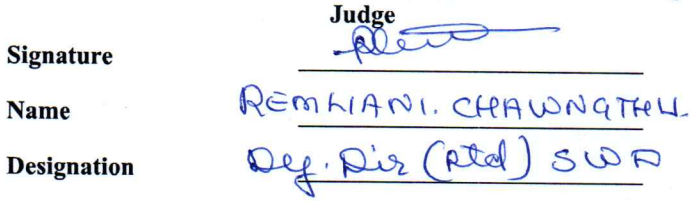 Judge
Signature
Name REMLIANI. CHAWNGTHU.
Designation Dy. Dir (Rtd) SWD